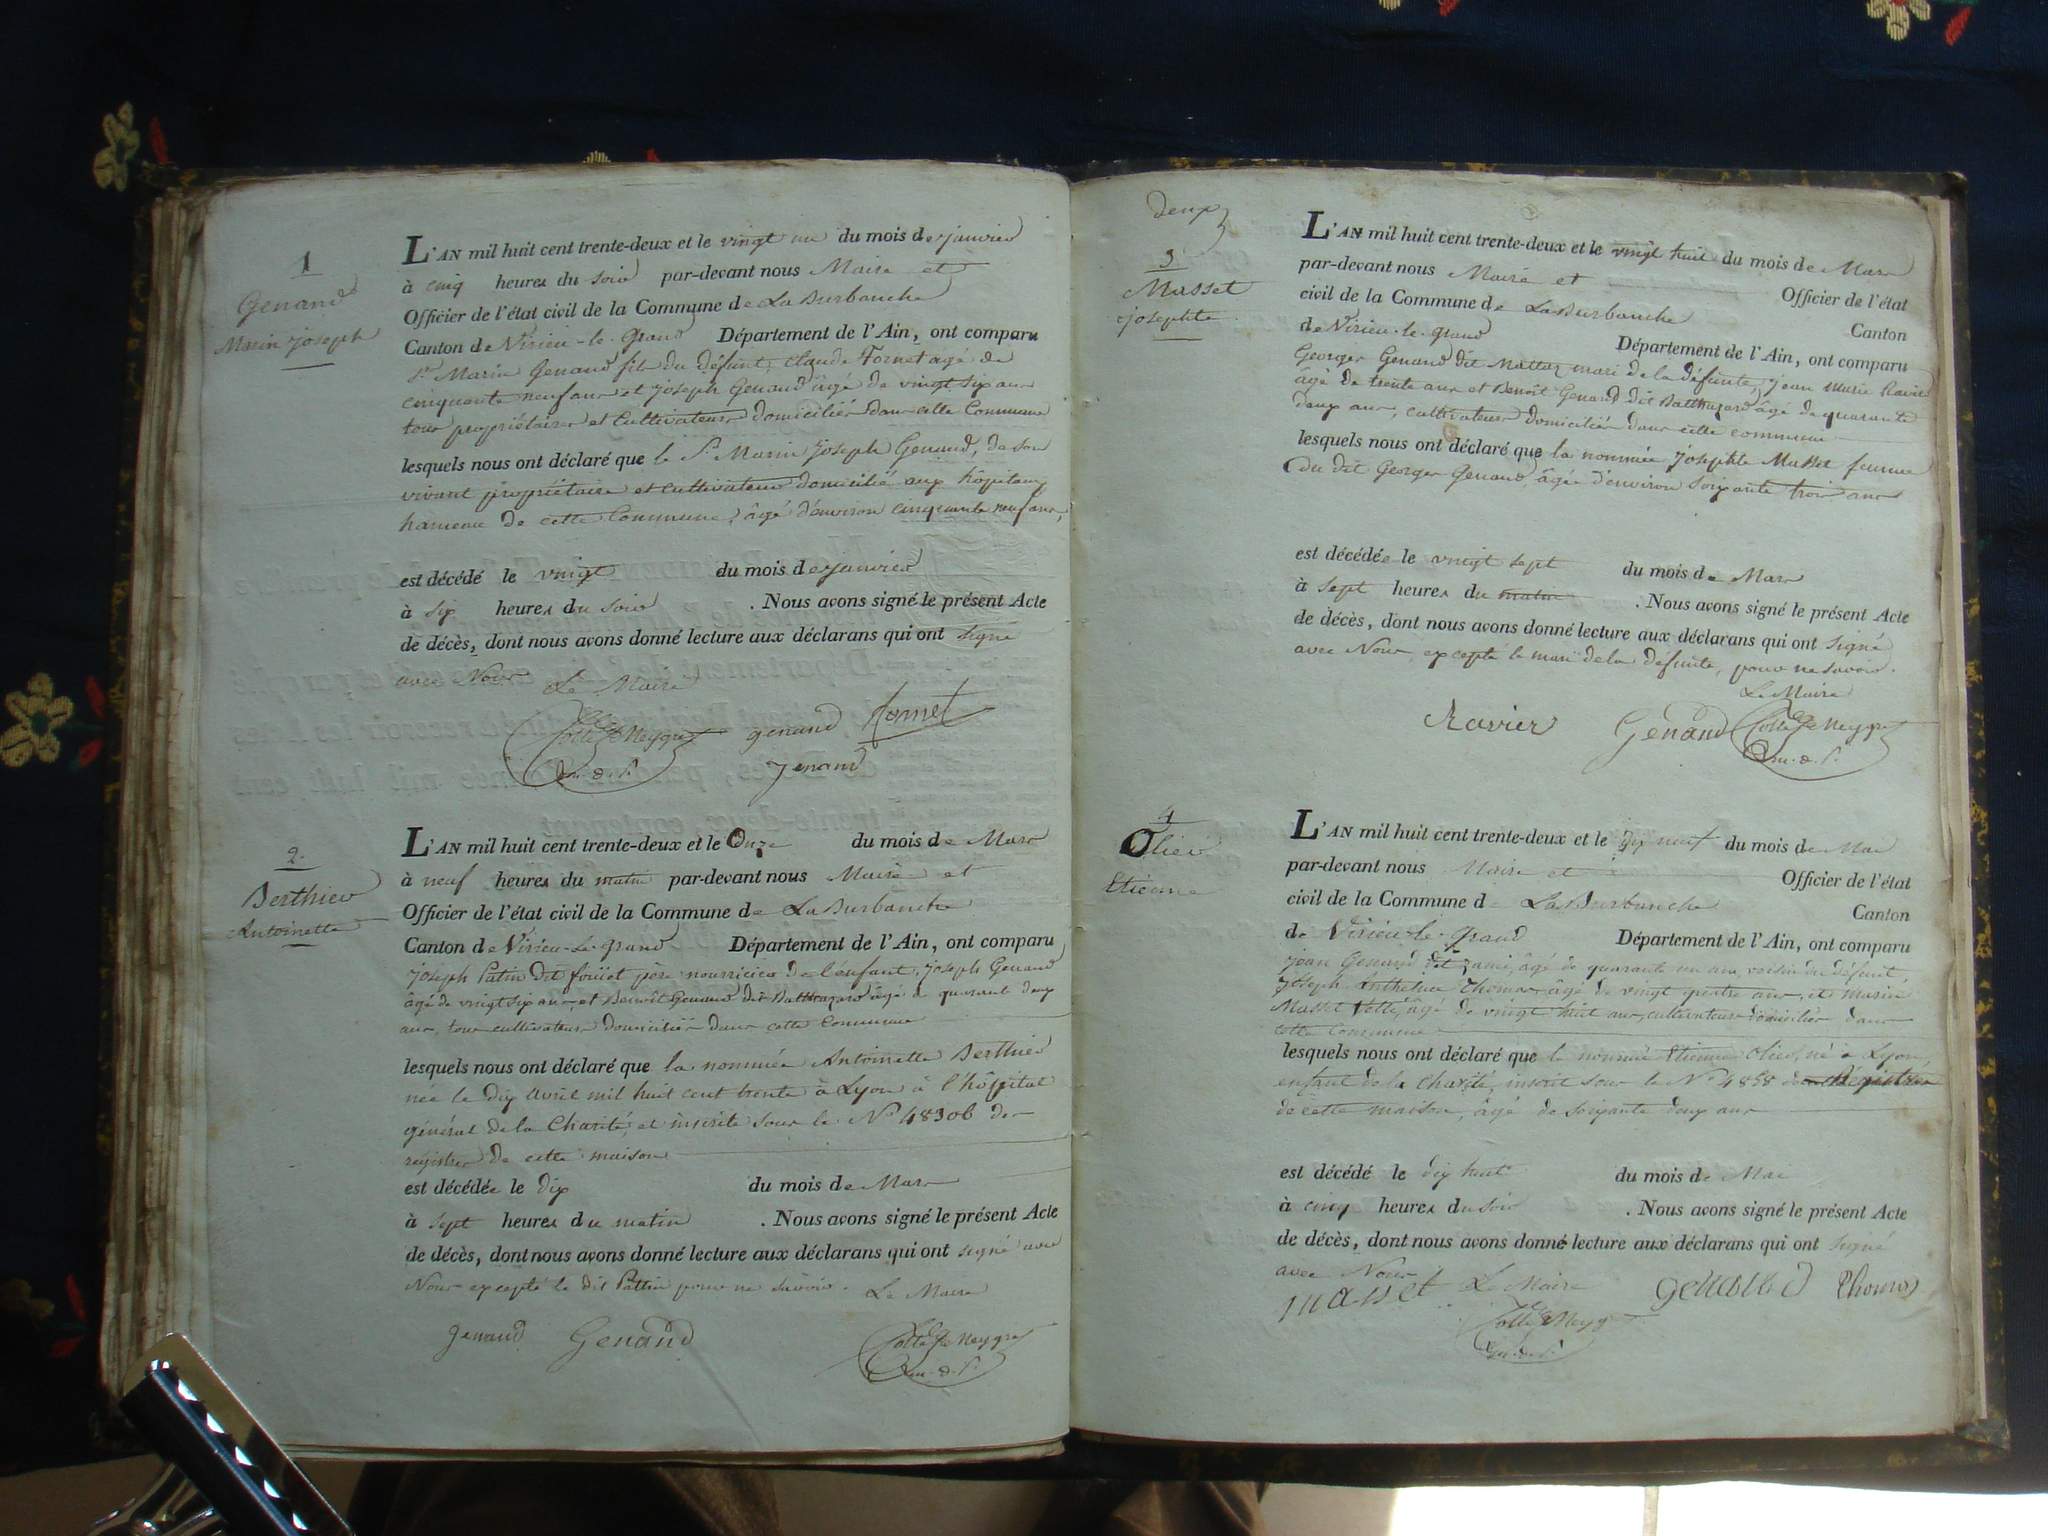 1
Genand
Marin joseph
L'AN mil huit cent trente-deux et le vingt un du mois de janvier
à cinq heures du soir par-devant nous Maire et
Officier de l'état civil de la Commune de La Burbanche
Canton de Virieu-le-grand Département de l'Ain, ont comparu
Sr. Marin Genand fils du défunt, claude Tornet agé de
cinquante neuf ans et joseph Genand âgé de vingt six ans
tous propriétaires et Cultivateurs domiciliés dans cette Commune
lesquels nous ont déclaré que le Sr. Marin joseph Genand, de son
vivant propriétaire et cultivateur domicilié aux hôpitaux
hameau de cette Commune, âgé d'environ cinquante neuf ans,
est décédé le vingt du mois de janvier
à six heures du soir . Nous avons signé le présent Acte
de décès, dont nous avons donné lecture aux déclarans qui ont signé
avec Nous Le Maire
genand Tornet
genand
2.
Berthier
Antoinette
L'AN mil huit cent trente-deux et le Onze du mois de Mars
à neuf heures du matin par-devant nous Maire et
Officier de l'état civil de la Commune de La Burbanche
Canton de Virieu-Le-grand Département de l'Ain, ont comparu
joseph Patin dit foüet père nourricier de l'enfant, joseph Genand
âgé de vingt six ans, et Benoît Genand dit Balthazard âgé de quarant deux
ans, tous cultivateurs domiciliés dans cette Commune
lesquels nous ont déclaré que la nommée Antoinette Berthier
née le dix avril mil huit cent trente à Lyon à l'hôpital
général de la Charité, et inscrite sous le No 48306 des
registres de cette maison
est décédée le dix du mois de Mars
à sept heures du matin . Nous avons signé le présent Acte
de décès, dont nous avons donné lecture aux déclarans qui ont signé avec
Nous excepté le dit Pattin pour ne savoir. Le Maire
genand Genand
deux
3
Masset
josephte
L'AN mil huit cent trente-deux et le vingt huit du mois de Mars
par-devant nous Maire et Officier de l'état
civil de la Commune de La Burbanche Canton
de Virieu-le-grand Département de l'Ain, ont comparu
Georges Genand dit Mattaz mari de la défunte, jean marie Ravier
âgé de trente ans et Benoît Genand dit Balthazard âgé de quarante
deux ans, cultivateurs domiciliés dans cette commune
lesquels nous ont déclaré que la nommée josephte Masset femme
du dit Georges Genand, âgée d'environ soixante trois ans
est décédée le vingt sept du mois de Mars
à sept heures du matin . Nous avons signé le présent Acte
de décès, dont nous avons donné lecture aux déclarans qui ont signé
avec Nous excepté le mari de la défunte, pour ne savoir.
Le Maire
Ravier Genand
4
Olier
Etienne
L'AN mil huit cent trente-deux et le dix neuf du mois de Mai
par-devant nous Maire et Officier de l'état
civil de la Commune de La Burbanche Canton
de Virieu-le-grand Département de l'Ain, ont comparu
jean Genand dit jami, âgé de quarante un ans, voisin du défunt,
joseph Anthelme Thomas âgé de vingt quatre ans, et Marin
Masset âgé de vingt huit ans, cultivateurs domiciliés dans
cette Commune
lesquels nous ont déclaré que le nommé Etienne Olier, né à Lyon,
enfant de la Charité, inscrit sous le No 4858 des Régistres
de cette maison, âgé de soixante deux ans
est décédé le dix huit du mois de Mai
à cinq heures du soir . Nous avons signé le présent Acte
de décès, dont nous avons donné lecture aux déclarans qui ont signé
avec Nous
masset Le Maire genand Thomas